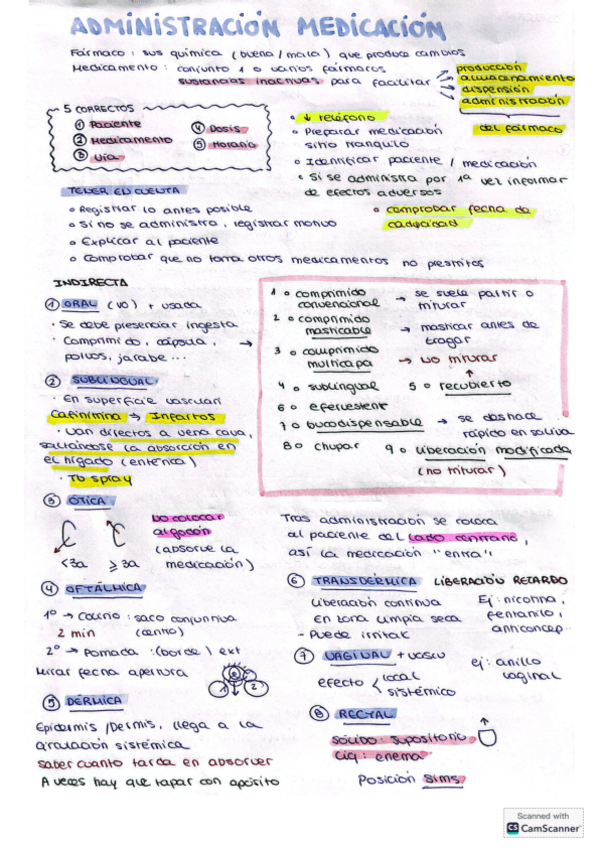 ADMINISTRACIÓN MEDICACIÓN
Fármaco : sus química (buena / mala) que produce cambios
Medicamento : conjunto 1 o varios fármacos
sustancias inactivas para facilitar
producción
almacenamiento
dispensión
administración
del fármaco
5 CORRECTOS
① Paciente
② Medicamento
③ Vía
④ Dosis
⑤ Horario
↓ teléfono
Preparar medicación
sitio tranquilo
Identificar paciente / medicación
Si se administra por 1ª vez informar
de efectos adversos
comprobar fecha de
caducidad
TENER EN CUENTA
Registrar lo antes posible
Si no se administra, registrar motivo
Explicar al paciente
Comprobar que no toma otros medicamentos no prescritos
INDIRECTA
① ORAL (VO) + usada
· Se debe presenciar ingesta
· Comprimido, cápsula, →
polvos, jarabe ...
② SUBLINGUAL
· En superficie vascular
→ Infartos
· Van directos a vena cava,
saltándose la absorción en
el hígado (entérica)
· Tb spray
1 o comprimido
convencional → se suele partir o
triturar
2 o comprimido
masticable → masticar antes de
tragar
3 o comprimido
multicapa → NO triturar
4 o sublingual
5 o recubierto
6 o efervescente
7 o bucodispensable → se deshace
rápido en saliva
8 o chupar
9 o liberación modificada
(no triturar)
③ ÓTICA
<3a
≥3a
No colocar
algodón
(absorbe la
medicación)
Tras administración se coloca
al paciente del lado contrario,
así la medicación "entra"
④ OFTÁLMICA
1º → Colirio : saco conjuntiva
2 min (centro)
2º → Pomada : (borde) ext
Mirar fecha apertura
1
2
⑤ DÉRMICA
Epidermis / Dermis, llega a la
circulación sistémica
saber cuanto tarda en absorver
A veces hay que tapar con apósito
⑥ TRANSDÉRMICA LIBERACIÓN RETARDO
Liberación continua
En zona limpia seca
- Puede irritar
Ej: nicotina,
fentanilo,
anticoncep..
⑦ VAGINAL + vasc
efecto < local
sistémico
ej: anillo
vaginal
⑧ RECTAL
Sólido : supositorio
Liq : enema
Posición Sims
Scanned with
CS CamScanner